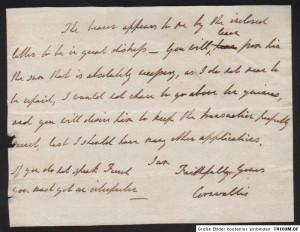 The bearer appears to me by the inclosed
letter to be in great distress – You will give him
the sum that is absolutely necessary, as I do not mean to
be repaid, I would not chuse to go above ten guineas,
and you will desire him to keep the transaction perfectly
secret, lest I should have many other applications.
I am
If you do not speak French
you must get an interpreter
Faithfully Yours
Cornwallis
Große Bilder kostenlos einbinden TRIXUM.DE